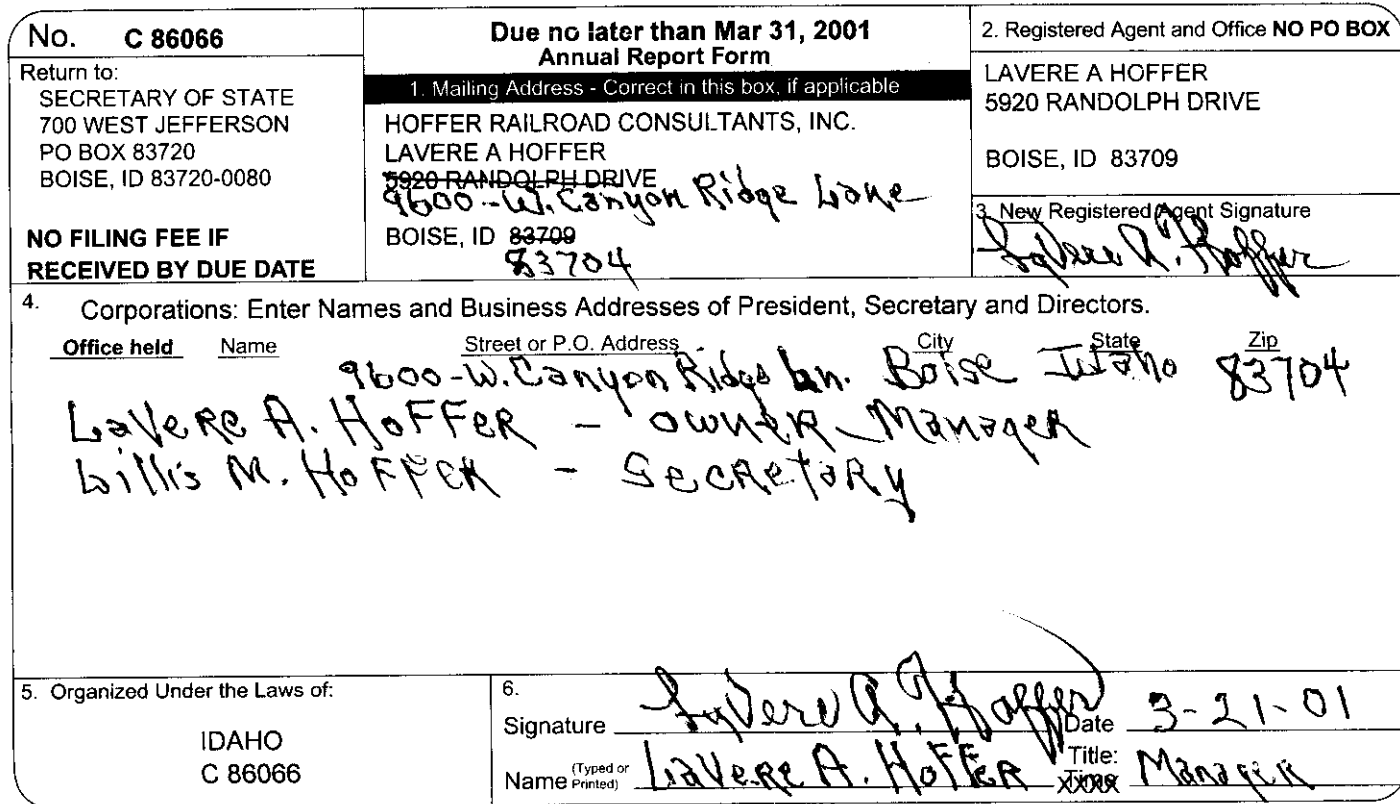 No. C 86066
Return to:
SECRETARY OF STATE
700 WEST JEFFERSON
PO BOX 83720
BOISE, ID 83720-0080
NO FILING FEE IF
RECEIVED BY DUE DATE
Due no later than Mar 31, 2001
Annual Report Form
1. Mailing Address - Correct in this box, if applicable
HOFFER RAILROAD CONSULTANTS, INC.
LAVERE A HOFFER
5920 RANDOLPH DRIVE
9600-W. Canyon Ridge Lane
BOISE, ID 83709
83704
2. Registered Agent and Office NO PO BOX
LAVERE A HOFFER
5920 RANDOLPH DRIVE
BOISE, ID 83709
3. New Registered Agent Signature
LaVere A. Hoffer
4. Corporations: Enter Names and Business Addresses of President, Secretary and Directors.
Office held Name Street or P.O. Address City State Zip
9600-W. Canyon Ridge Ln. Boise Idaho 83704
LaVeRe A. HoFFeR - owneR-ManageR
Lillis M. HoFFeR - SecRetaRy
5. Organized Under the Laws of:
IDAHO
C 86066
6.
Signature LaVere A. Hoffer Date 3-21-01
Name (Typed or Printed) LaVeRe A. HoffeR Title: ManageR